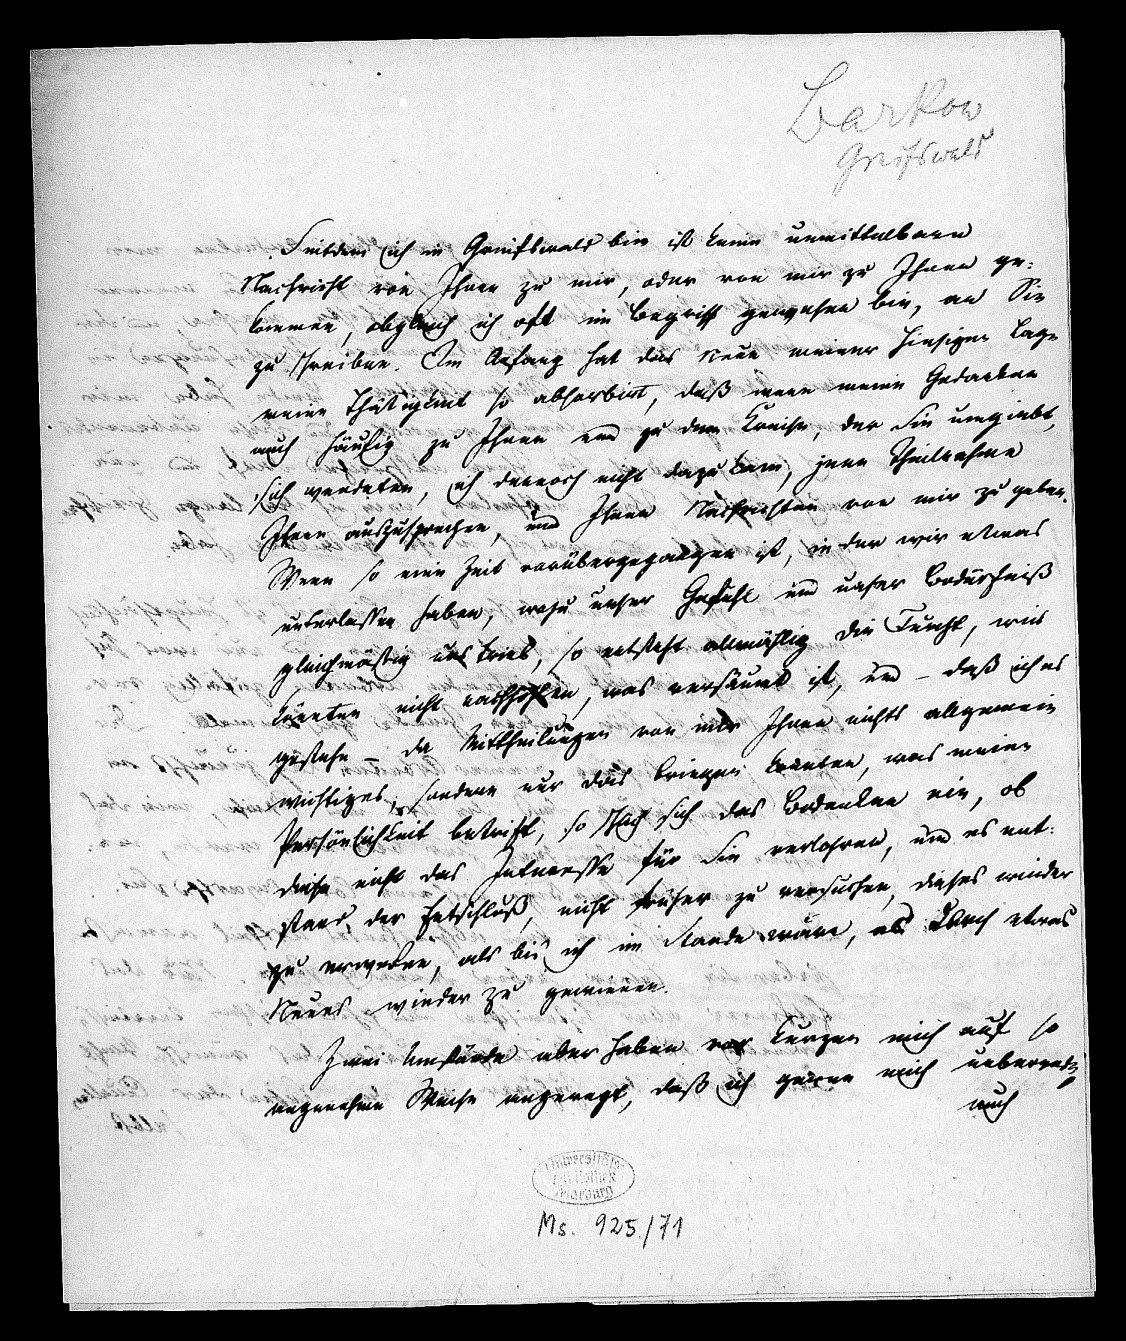 Barkow
Greifswald
Seitdem ich in Greifswald bin ist keine unmittelbare
Nachricht von Ihnen zu mir, oder von mir zu Ihnen ge-
kommen, obgleich ich oft im Begriff gewesen bin, an Sie
zu schreiben. Im Anfang hat das Neue meiner hiesigen Lage
meine Thätigkeit so absorbirt, daß wenn meine Gedanken
auch häufig zu Ihnen und zu dem Kreise, der Sie umgiebt,
sich wendeten, ich dennoch nicht dazu kam, jene Theilnahme
Ihnen auszusprechen, und Ihnen Nachrichten von mir zu geben.
Wenn so eine Zeit vorübergegangen ist, in der wir etwas
unterlassen haben, wozu unser Gefühl und unser Bedürfniß
gleichmäßig uns trieb, so entsteht allmählig die Furcht, wir
könnten nicht nachholen, was versäumt ist, und – daß ich es
gestehe – da Mittheilungen von mir Ihnen nichts allgemein
wichtiges, sondern nur das bringen konnten, was meine
Persönlichkeit betrifft, so schlich sich das Bedenken ein, ob
diese nicht das Interesse für Sie verlohren, und es ent-
stand der Entschluß, nicht früher zu versuchen, dieses wieder
zu erwecken, als bis ich im Stande wäre, es durch etwas
Neues wieder zu gewinnen.
Zwei Umstände aber haben vor Kurzem mich auf so
angenehme Weise angeregt, daß ich gerne mich ueberrede,
auch
Universitäts-
Bibliothek
Marburg
Ms. 925/71